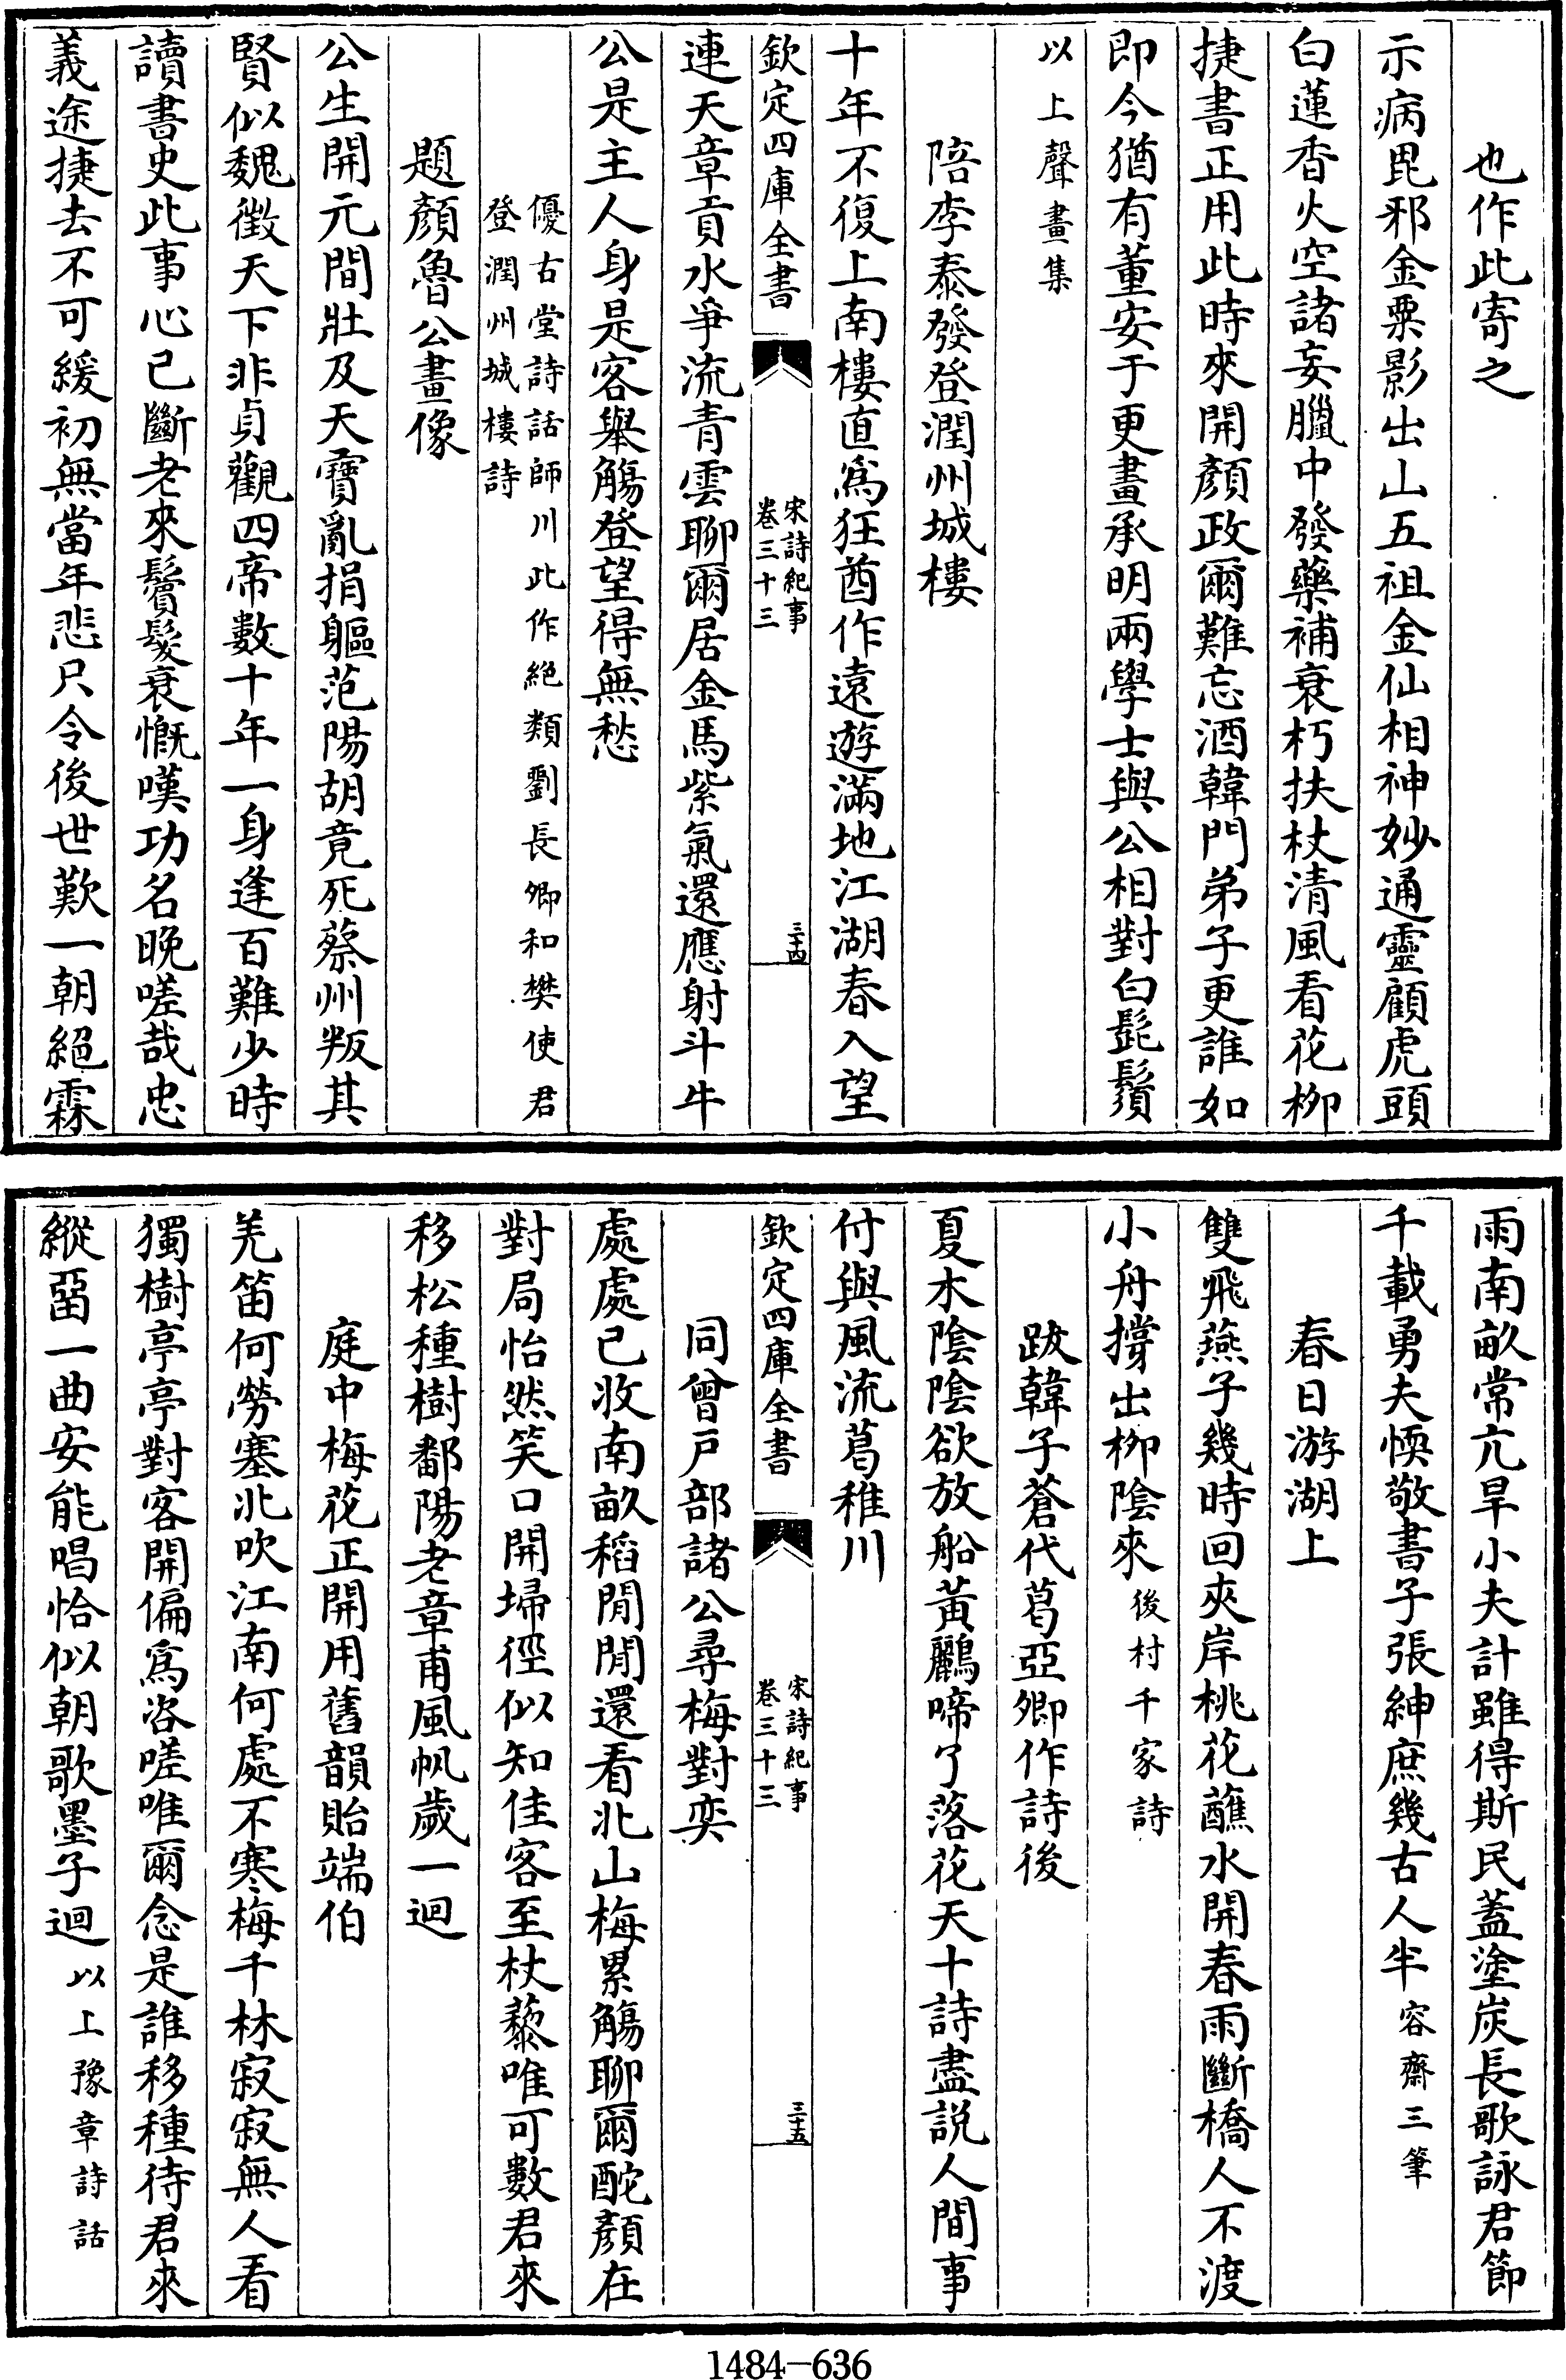 也作此寄之
示病毘邪金粟影出山五祖金仙相神妙通靈顧虎頭
白蓮香火空諸妄臘中發藥補衰朽扶杖清風看花柳
捷書正用此時來開顏政爾難忘酒韓門弟子更誰如
即今猶有董安于更畫承明兩學士與公相對白髭鬚
以上聲畫集
陪李泰發登潤州城樓
十年不復上南樓直爲狂酋作遠遊滿地江湖春入望
欽定四庫全書
宋詩紀事
卷三十三
三十四
連天章貢水爭流青雲聊爾居金馬紫氣還應射斗牛
公是主人身是客舉觴登望得無愁
優古堂詩話師川此作絕類劉長卿和樊使君
登潤州城樓詩
題顏魯公畫像
公生開元間壯及天寶亂捐軀范陽胡竟死蔡州叛其
賢似魏徵天下非貞觀四帝數十年一身逢百難少時
讀書史此事心已斷老來鬢髮衰慨嘆功名晚嗟哉忠
義途捷去不可緩初無當年悲只令後世歎一朝絕霖
雨南畝常亢旱小夫計雖得斯民蓋塗炭長歌詠君節
千載勇夫愞敬書子張紳庶幾古人半容齋三筆
春日游湖上
雙飛燕子幾時回夾岸桃花蘸水開春雨斷橋人不渡
小舟撐出柳陰來後村千家詩
跋韓子蒼代葛亞卿作詩後
夏木陰陰欲放船黃鸝啼了落花天十詩盡説人間事
付與風流葛稚川
欽定四庫全書
宋詩紀事
卷三十三
三十五
同曾戸部諸公尋梅對奕
處處已收南畝稻閒閒還看北山梅累觴聊爾酡顏在
對局怡然笑口開埽徑似知佳客至杖藜唯可數君來
移松種樹鄱陽老章甫風帆歲一迴
庭中梅花正開用舊韻貽端伯
羌笛何勞塞北吹江南何處不寒梅千林寂寂無人看
獨樹亭亭對客開偏爲咨嗟唯爾念是誰移種待君來
縱畱一曲安能唱恰似朝歌墨子迴以上豫章詩話
1484-636